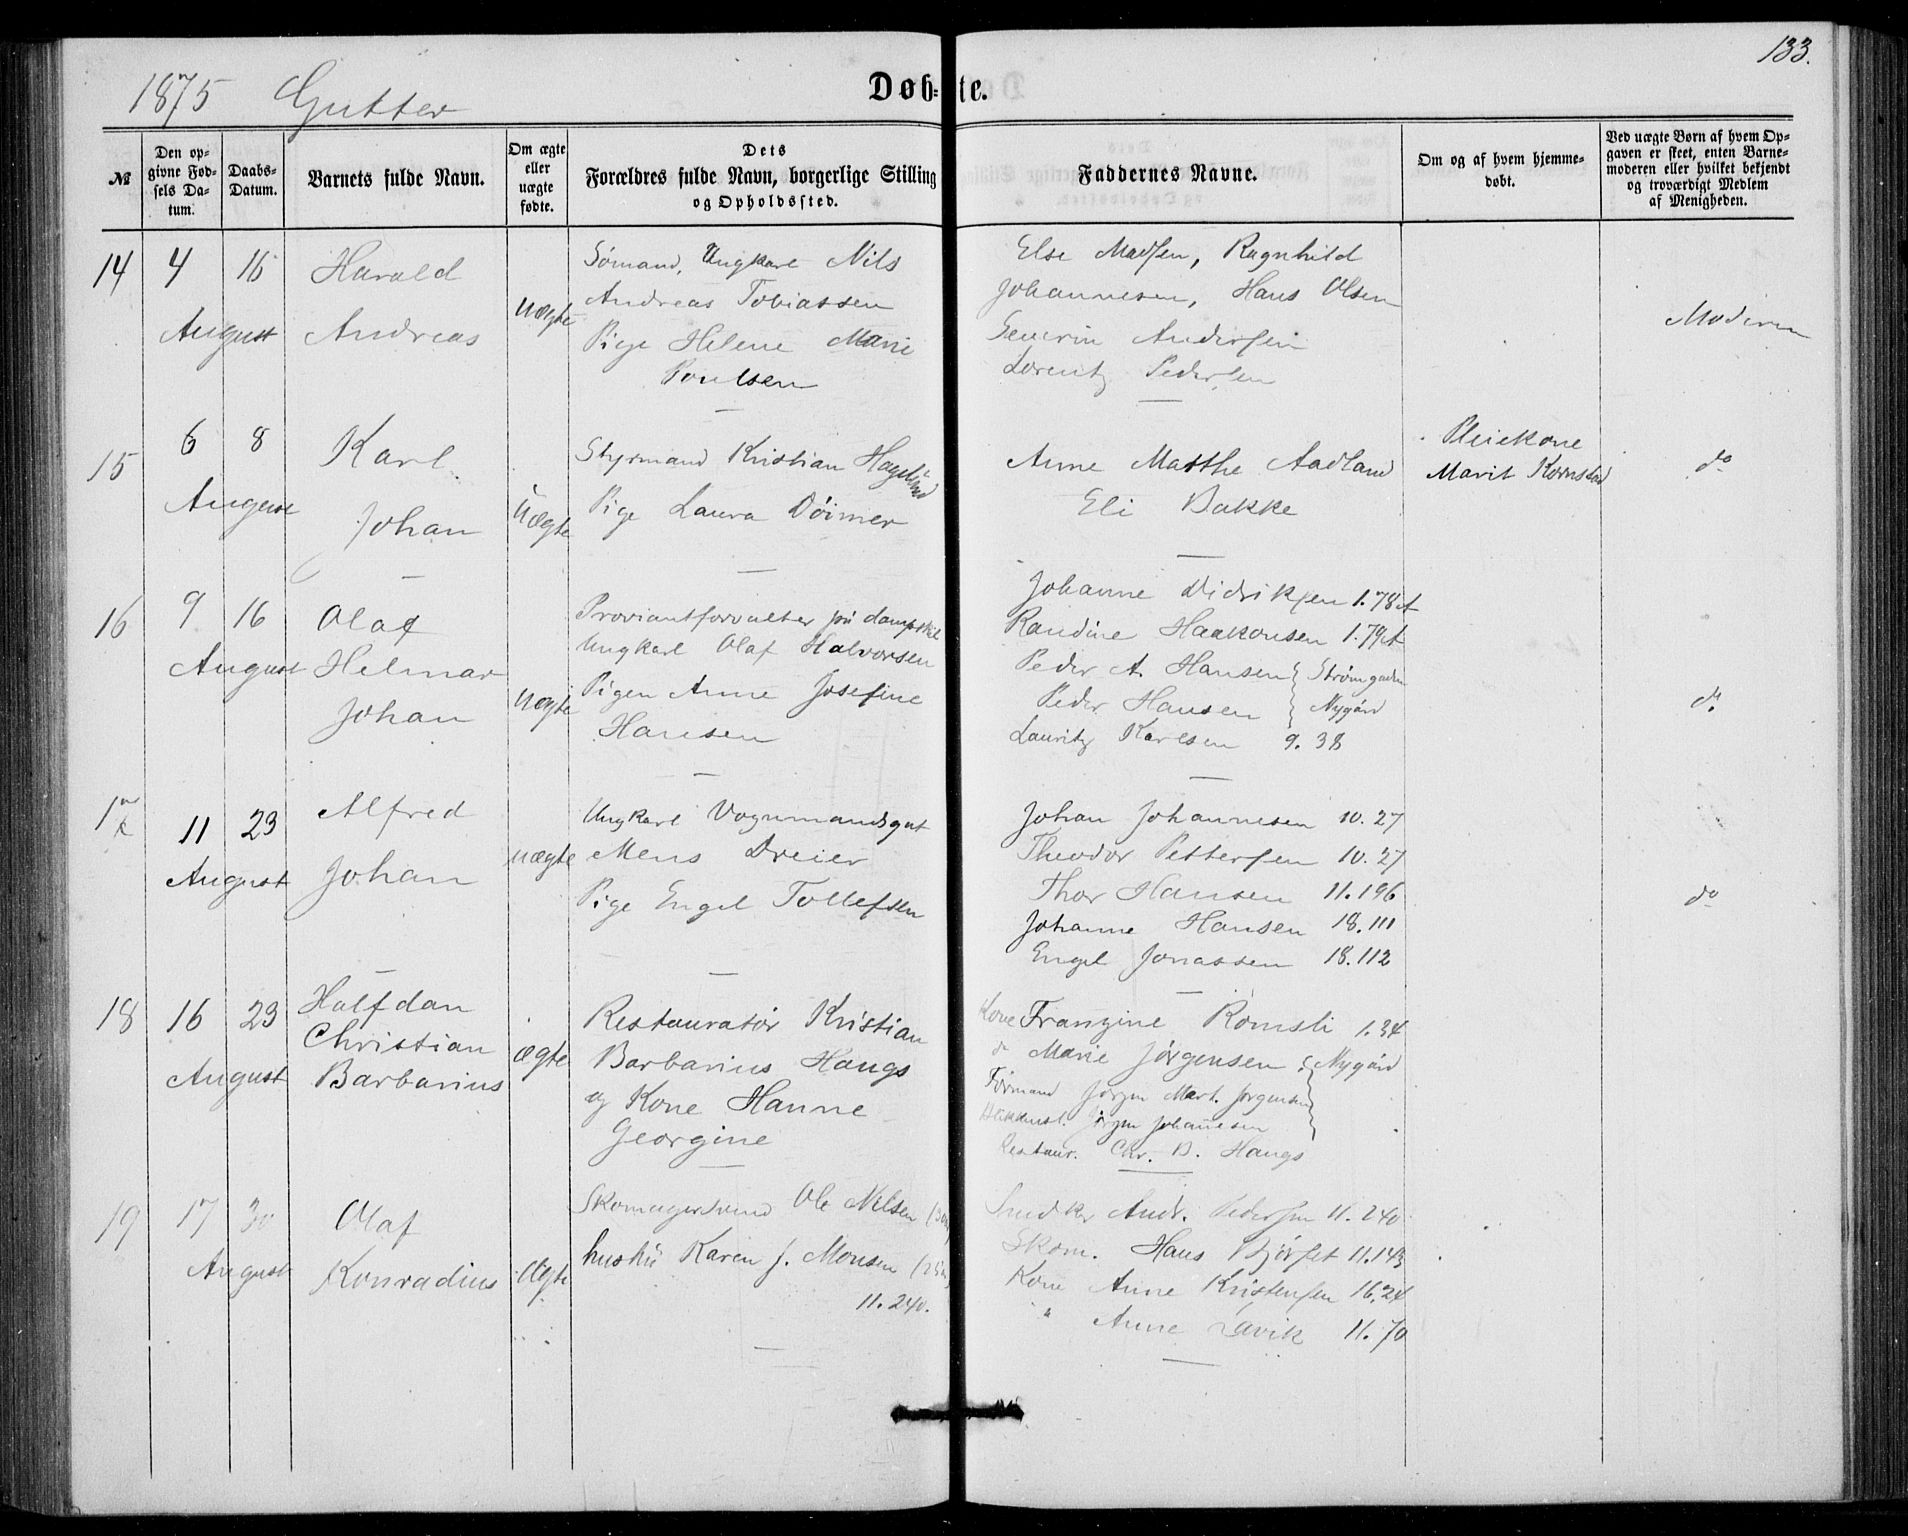 133.
1875 Gutter
Døb= te.
№
Den op-
givne Fød-
sels Da-
tum.
Daabs-
Datum.
Barnets fulde Navn.
Om ægte
eller
uægte
fødte.
Dets
Forældres fulde Navn, borgerlige Stilling
og Opholdssted.
Faddernes Navne.
Om og af hvem hjemme-
døbt.
Ved uægte Børn af hvem Op-
gaven er skeet, enten Barne-
moderen eller hvilket bekjendt
og troværdigt Medlem
af Menigheden.
14 4 August 16
Harald
Andreas
uægte
Sømand, Ungkarl Nils
Andreas Tobiassen
Pige Helene Marie
Poulsen
Else Madsen, Ragnhild
Johannesen, Hans Olsen
Severin Andersen
Lorentz Pedersen
Moderen
15 6 August 8
Karl
Johan
Uægte
Styrmand Kristian
Pige Laura Døimer
Anne Marthe Aadland
Eli Bakke
Pleiekone
Marit Kornstad
do
16 9 August 16
Olaf
Helmar
Johan
uægte
Proviantforvalter på dampskib
Ungkarl Olaf Halvorsen
Pigen Anne Josefine
Hansen
Johanne Didriksen 1.78
Randine Haakonsen 1.79
Peder A. Hansen } Strømgaden
Peder Hansen } Nygård
Lauritz Karlsen 9.38
do
17 11 August 23
Alfred
Johan
uægte
Ungkarl Vognmandsgut
Mens Dreier
Pige Engel Tollefsen
Johan Johannesen 10.27
Theodor Pettersen 10.27
Thor Hansen 11.196
Johanne Hansen 18.111
Engel Jonassen 18.112
do
18 16 August 23
Halfdan
Christian
Barbarius
ægte
Restauratør Kristian
Barbarius Haugs
og Kone Hanne
Georgine
Kone Franzine Romsli 1.34
d Marie Jørgensen } Nygård
Formand Jørgen Mart. Jørgensen
Jørgen Johannesen
Restaur. Chr. B. Haugs
19 17 August 30
Olaf
Konradius
Ægte
Skomagersvend Ole Nilsen
hustru Karen J. Monsen
11.240.
Snedker Andr. Pedersen 11.240
Skom. Hans 11.143
Kone Anne Kristensen 16.24
" Anne Lavik 11.70